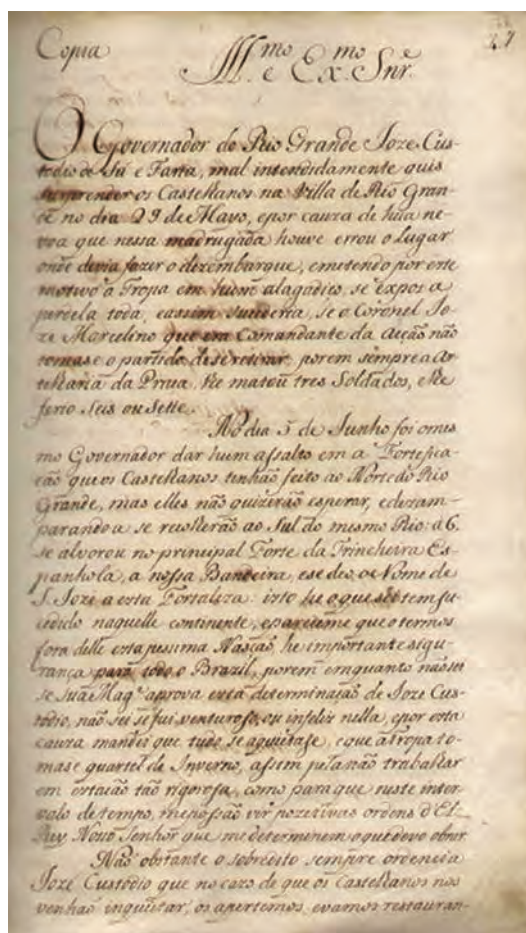 Copia
47
Ill.mo e Ex.mo Snr.
O Governador do Rio Grande Joze Cus-
todio de Sá e Faria, mal intendidamente quis
surprender os Castelhanos na Villa do Rio Gran-
de no dia 29 de Mayo, epor cauza de húa ne-
voa que nessa madrugada houve errou o Lugar
onde devia fazer o dezembarque, emetendo por este
motivo a Tropa em hum alagadiço, se expos a
perdela toda, eassim sucederia, se o Coronel Jo-
ze Marcelino que era Comandante da Acção não
tomase o partido de se retirar, porem sempre a Ar-
telharia da Praça, lhe matou tres Soldados, e lhe
ferio Seis ou Sette.
No dia 5 de Junho foi o mes-
mo Governador dar hum assalto em a Fortefica-
cão que os Castelhanos tinhão feito ao Norte do Rio
Grande, mas elles não quizerão esperar, edezam-
parandoa se recolherão ao Sul do mesmo Rio: á 6.
se alvorou no principal Forte da Trincheira Es-
panhola, a nossa Bandeira, ese deo, o Nome de
S. Joze a esta Fortaleza: isto he o que se tem su-
cedido naquelle continente, epareceme que o termos
fora delle esta pessima Nasção, he importante sigu-
rança para todo o Brazil, porem emquanto não sei
se Sua Mag.e aprova esta determinasão de Joze Cus-
todio, não sei se fui venturoso, ou infeliz nella, epor esta
cauza mandei que tudo se aquietase, e que a Tropa to-
mase quartel de Inverno, assim pela não trabalhar
em estação tão rigoroza, como para que neste inter-
valo de tempo, me possão vir pozetivas ordens d'El-
Rey Nosso Senhor que me determinem o que devo obrar.
Não obstante o sobredito sempre ordenei a
Joze Custodio que no cazo de que os Castelhanos nos
venhão inquietar, os apertemos, evamos restauran-